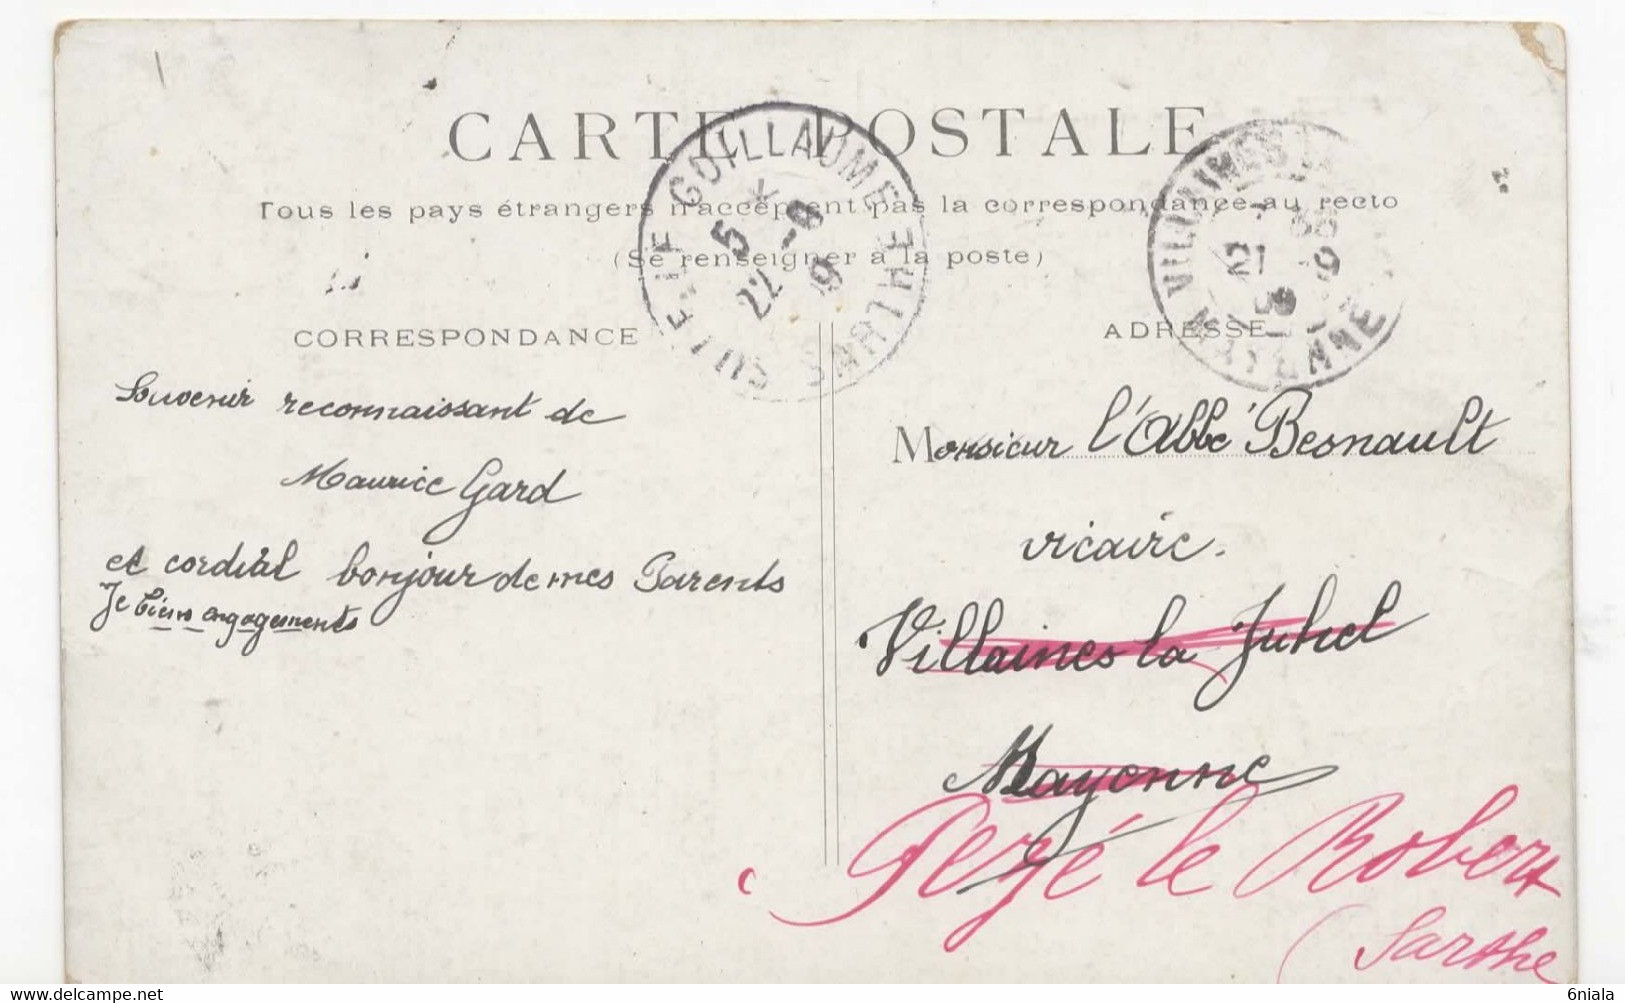 CARTE POSTALE
Tous les pays étrangers n'acceptent pas la correspondance au recto
(Se renseigner à la poste)
SILLÉ-LE-GUILLAUME
SARTHE
5 *
22 -9
09
VILLAINES LA
MAYENNE
21 -9
09
CORRESPONDANCE
ADRESSE
Souvenir reconnaissant de
Maurice Gard
et cordial bonjour de mes Parents
Je bien engagements
Monsieur l'Abbé Besnault
vicaire
Villaines la Juhel
Mayenne
Pezé le Robert
(Sarthe
6niala